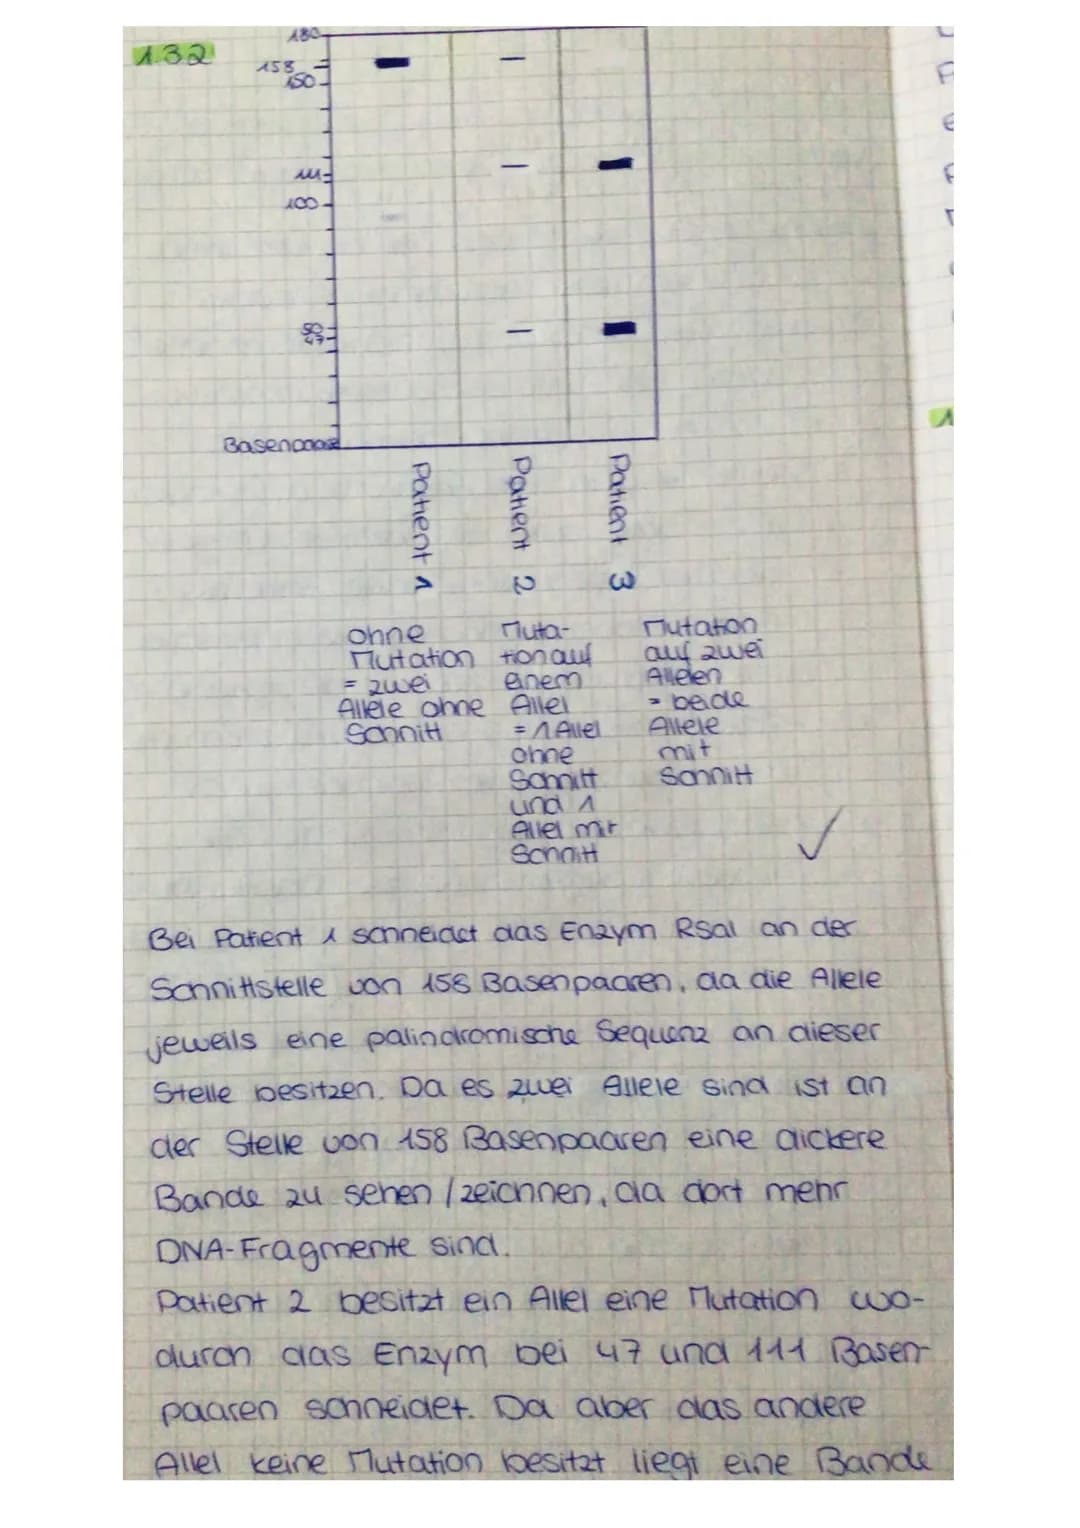 132
180
158
150
111
100
50
47
Basenpaare
Patient 1
Patient 2
Patient 3
ohne
Mutation
= zwei
Allele ohne
Schnitt
Muta-
tion auf
einem
Allel
= 1 Allel
ohne
Schnitt
und 1
Allel mit
Schnitt
Mutation
auf zwei
Allelen
= beide
Allele
mit
Schnitt
Bei Patient 1 schneidet das Enzym RsaI an der
Schnittstelle von 158 Basenpaaren, da die Allele
jeweils eine palindromische Sequenz an dieser
Stelle besitzen. Da es zwei Allele sind ist an
der Stelle von 158 Basenpaaren eine dickere
Bande zu sehen / zeichnen, da dort mehr
DNA-Fragmente sind.
Patient 2 besitzt ein Allel eine Mutation wo-
durch das Enzym bei 47 und 111 Basen-
paaren schneidet. Da aber das andere
Allel keine Mutation besitzt liegt eine Bande